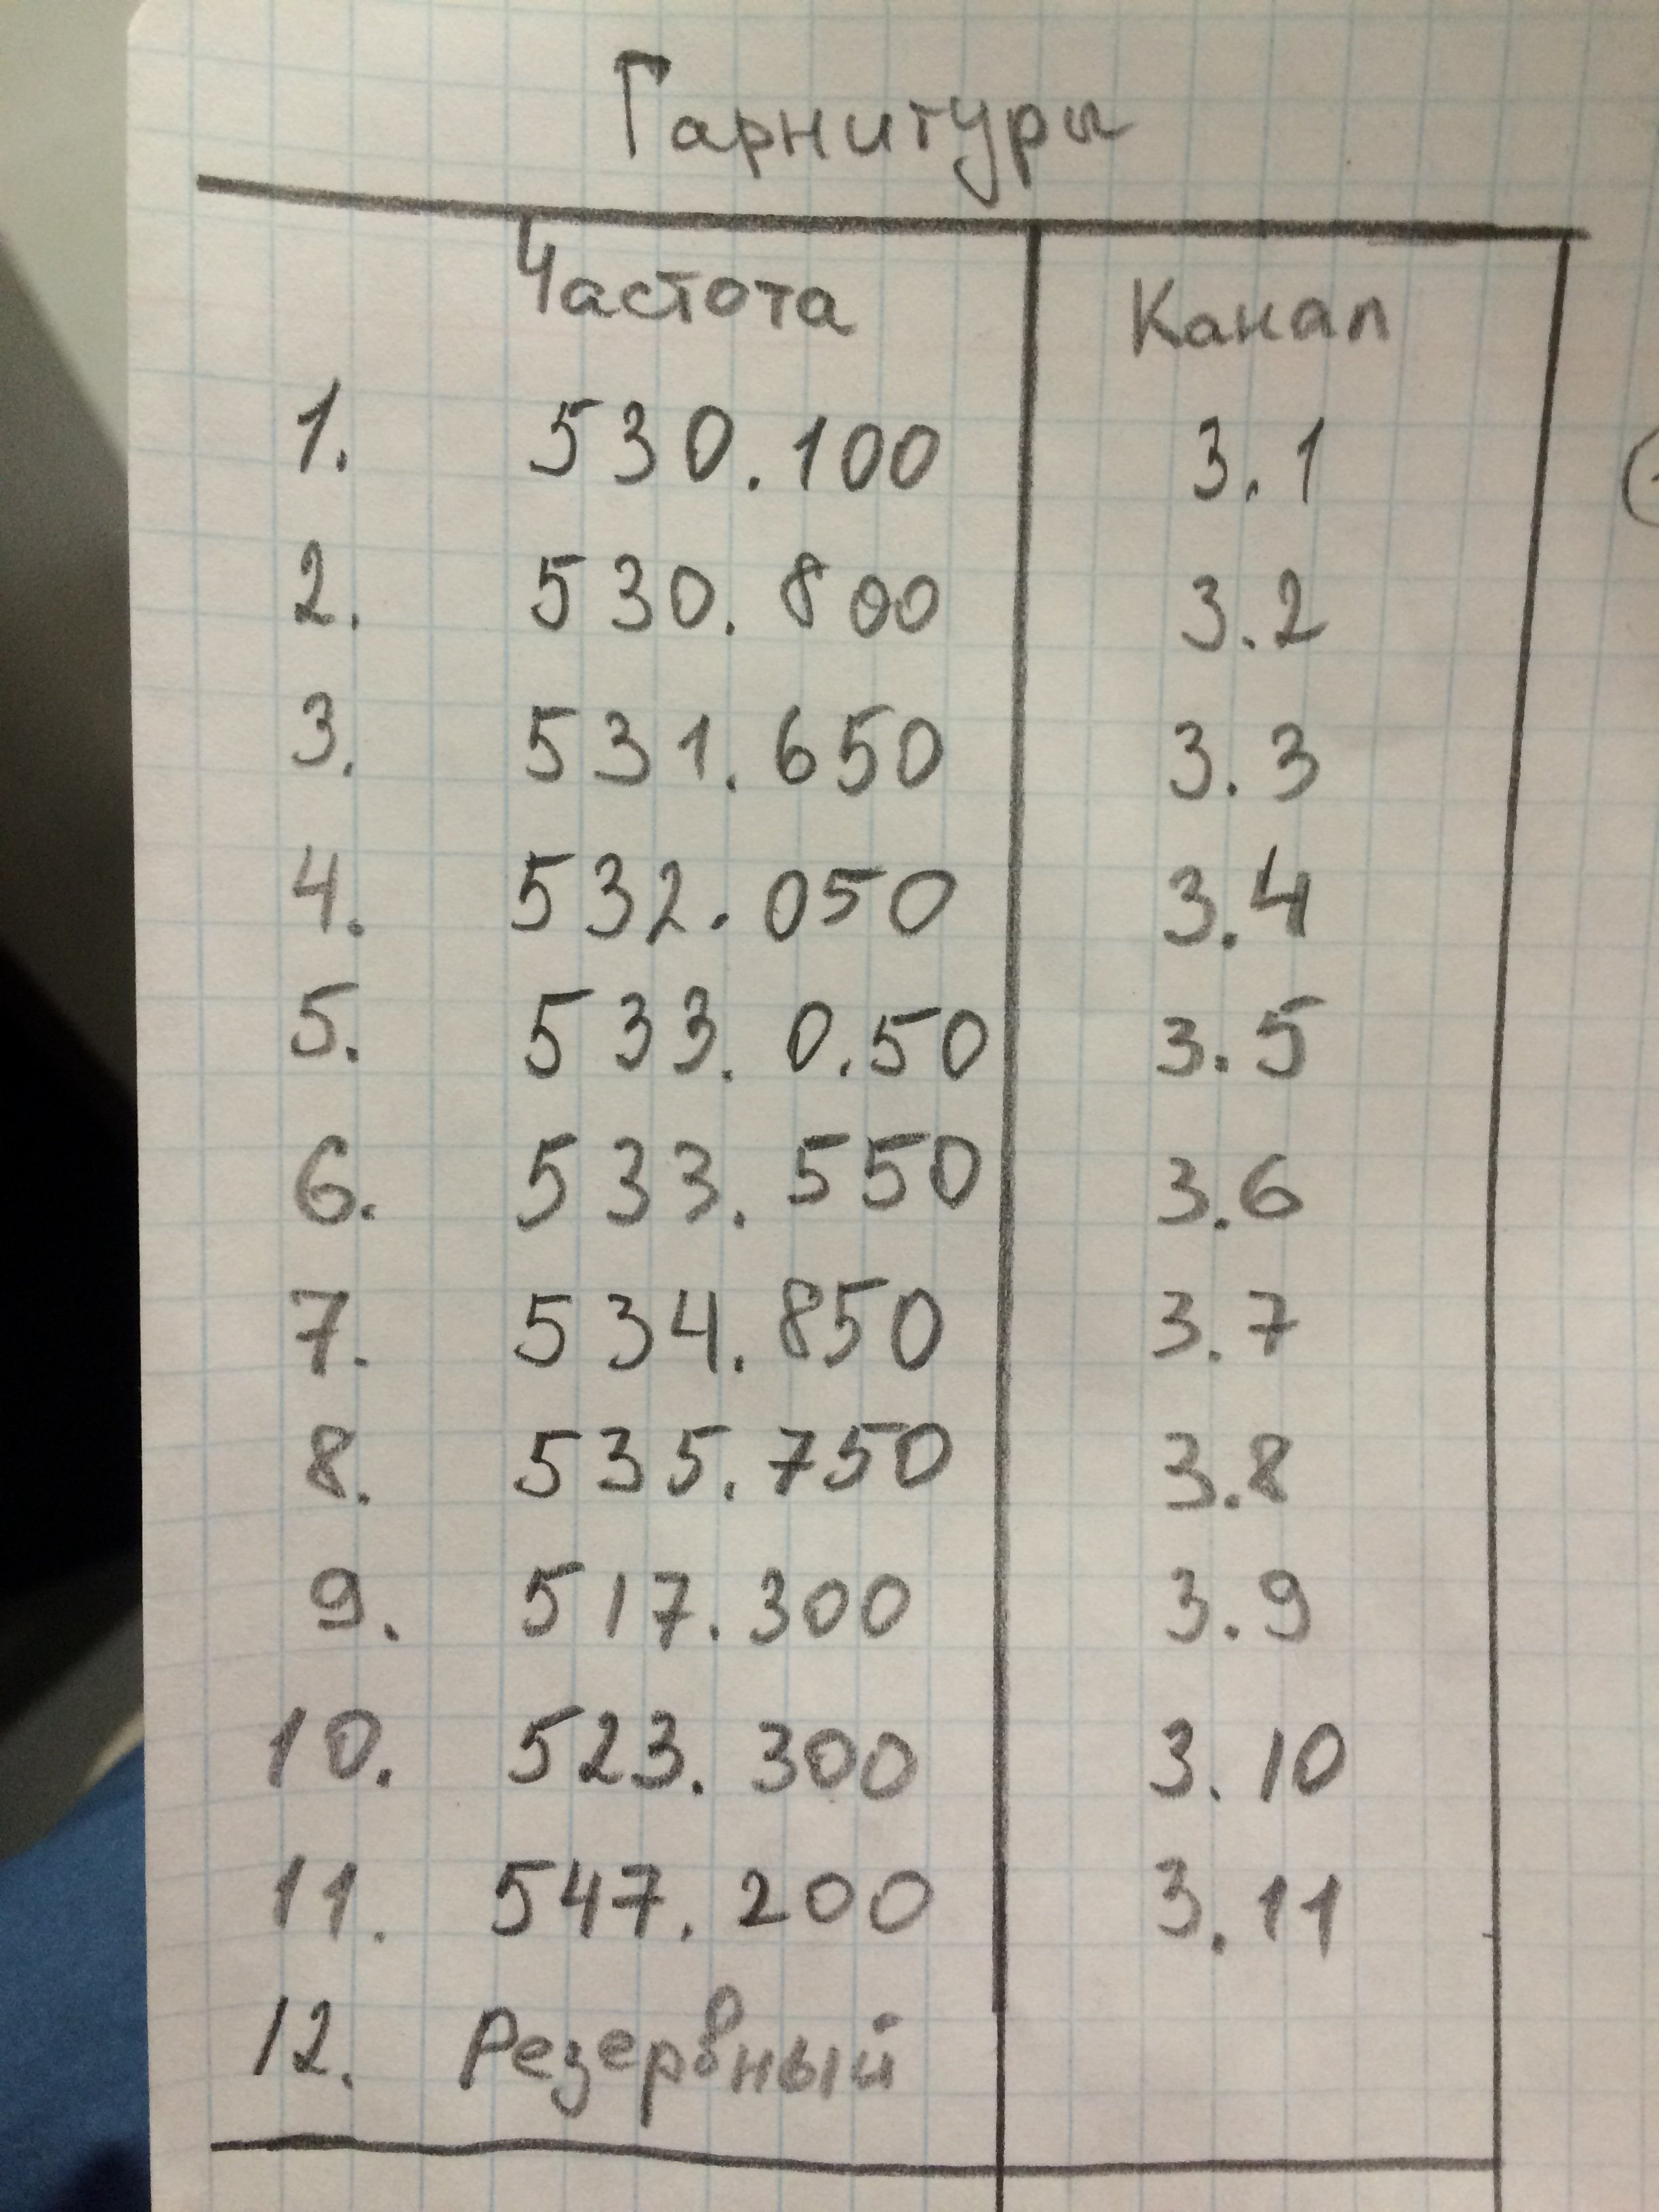 Гарнитуры
Частота Канал
1. 530.100 3.1
2. 530.800 3.2
3. 531.650 3.3
4. 532.050 3.4
5. 533.0.50 3.5
6. 533.550 3.6
7. 534.850 3.7
8. 535.750 3.8
9. 517.300 3.9
10. 523.300 3.10
11. 547.200 3.11
12. Резервный